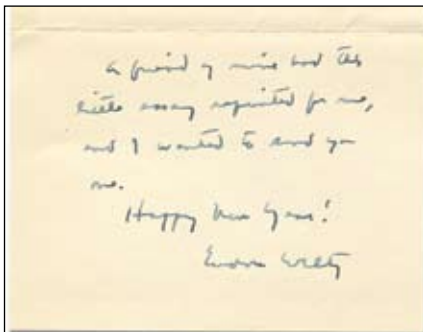 A friend of mine had this
little essay reprinted for me,
and I wanted to send you
one.
Happy New Year!
Eudora Welty